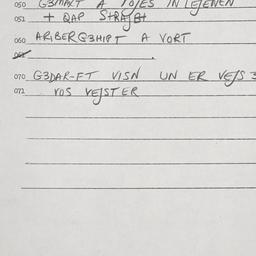 050 G3MAXT A TOJES IN LEJENEN
051 + QAP STRAJBT
060 ARIBERG3HIPT A VORT
061
070 G3DAR-FT VISN UN ER VEJS 3
071 VOS VEJSTER